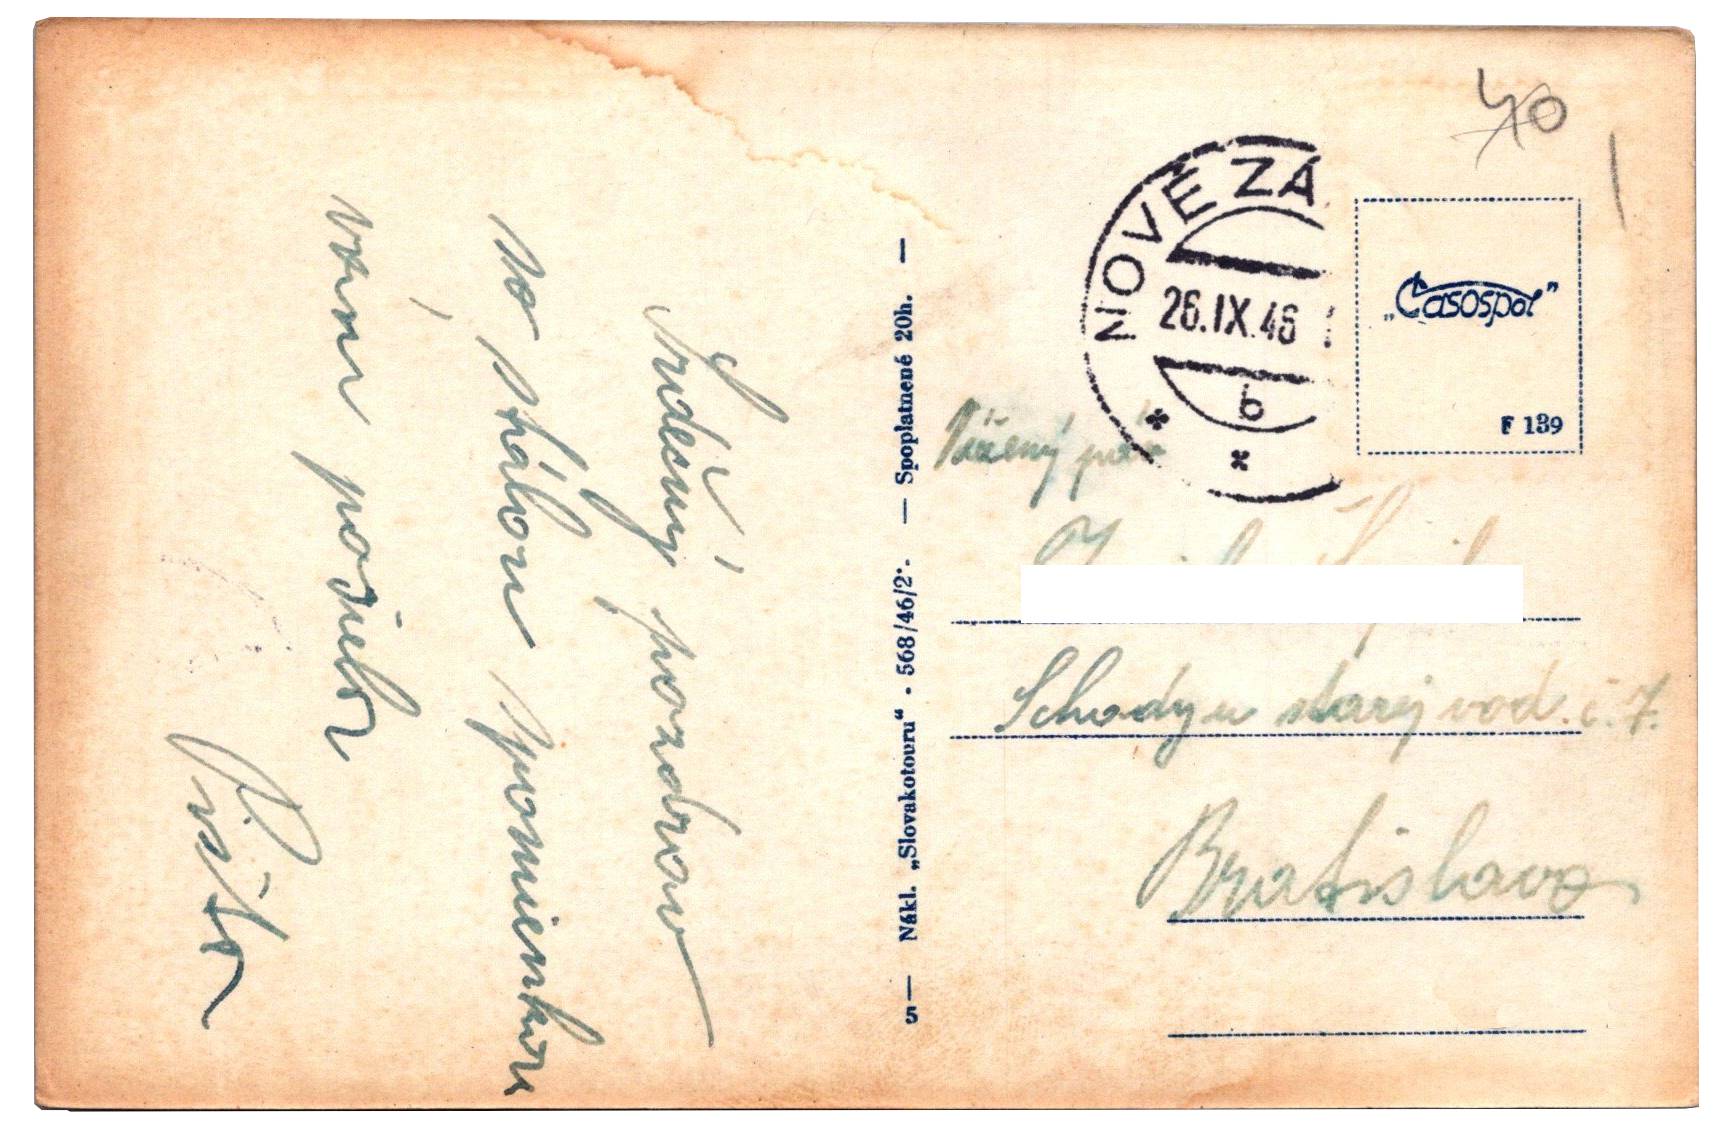 Srdečný pozdrav
so stálou spomienkou
vám posiela
Pišta
5 — Nákl. „Slovakotouru“ · 568/46/2·. — Spoplatnené 20h. —
40
NOVÉ ZÁ
26.IX.46
b
„Časospol”
F 139
Vážený pán
Schody u starej vod. č. 7.
Bratislava